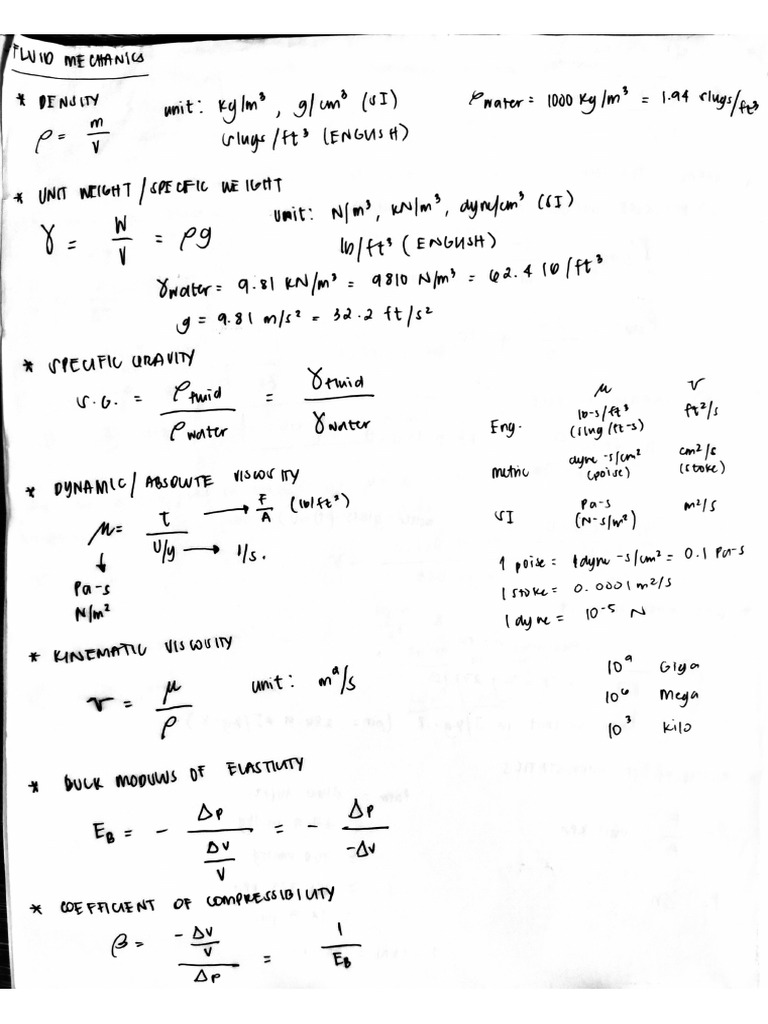 FLUID MECHANICS
* DENSITY unit: kg/m³, g/cm³ (SI) ρwater = 1000 kg/m³ = 1.94 slugs/ft³
ρ = m/V slugs/ft³ (ENGLISH)
* UNIT WEIGHT / SPECIFIC WEIGHT
unit: N/m³, kN/m³, dyne/cm³ (SI)
γ = W/V = ρg lb/ft³ (ENGLISH)
γwater = 9.81 kN/m³ = 9810 N/m³ = 62.4 lb/ft³
g = 9.81 m/s² = 32.2 ft/s²
* SPECIFIC GRAVITY
S.G. = ρfluid/ρwater = γfluid/γwater
μ ν
Eng. lb-s/ft³ (slug/ft-s) ft²/s
metric dyne-s/cm² (poise) cm²/s (stoke)
SI Pa-s (N-s/m²) m²/s
* DYNAMIC / ABSOLUTE VISCOSITY
μ = t / U/y
t → F/A (lb/ft²)
U/y → 1/s.
↓
Pa-s
N/m²
1 poise = 1 dyne-s/cm² = 0.1 Pa-s
1 stoke = 0.0001 m²/s
1 dyne = 10⁻⁵ N
* KINEMATIC VISCOSITY
ν = μ/ρ unit: m²/s
10⁹ Giga
10⁶ Mega
10³ kilo
* BULK MODULUS OF ELASTICITY
E_B = - Δp / (Δv/v) = - Δp / -Δv
* COEFFICIENT OF COMPRESSIBILITY
β = (-Δv/v) / Δp = 1/E_B